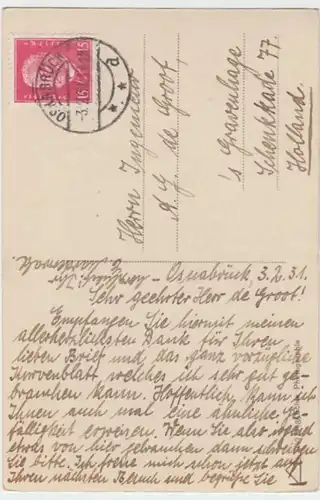 OSNABRÜCK
-3.2.31
a
Herrn Ingenieur
A. J. de Groot,
's Gravenhage
Schenkkade 77.
Holland.
Osnabrück, 3.2.31.
Sehr geehrter Herr de Groot!
Empfangen Sie hiermit meinen
allerherzlichsten Dank für Ihren
lieben Brief und das ganz vorzügliche
Kurvenblatt welches ich sehr gut ge-
brauchen kann. Hoffentlich kann ich
Ihnen auch mal eine ähnliche Ge-
fälligkeit erweisen. Wenn Sie also irgend
etwas von hier gebrauchen dann schreiben
Sie bitte. Ich freue mich schon jetzt auf
Ihren nächsten Besuch und begrüße Sie